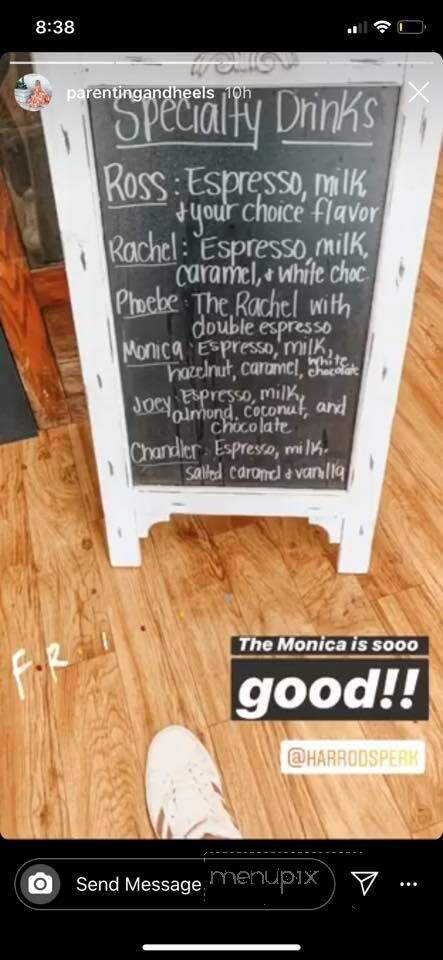 8:38
parentingandheels 10h
Specialty Drinks
Ross: Espresso, milk
+ your choice flavor
Rachel: Espresso, milk,
caramel, + white choc.
Phoebe: The Rachel with
double espresso
Monica: Espresso, milk,
hazelnut, caramel, white chocolate
Joey: Espresso, milk,
almond, coconut, and
chocolate
Chandler: Espresso, milk,
salted caramel & vanilla
F.R.I
The Monica is sooo
good!!
@HARRODSPERK
Send Message
menupix